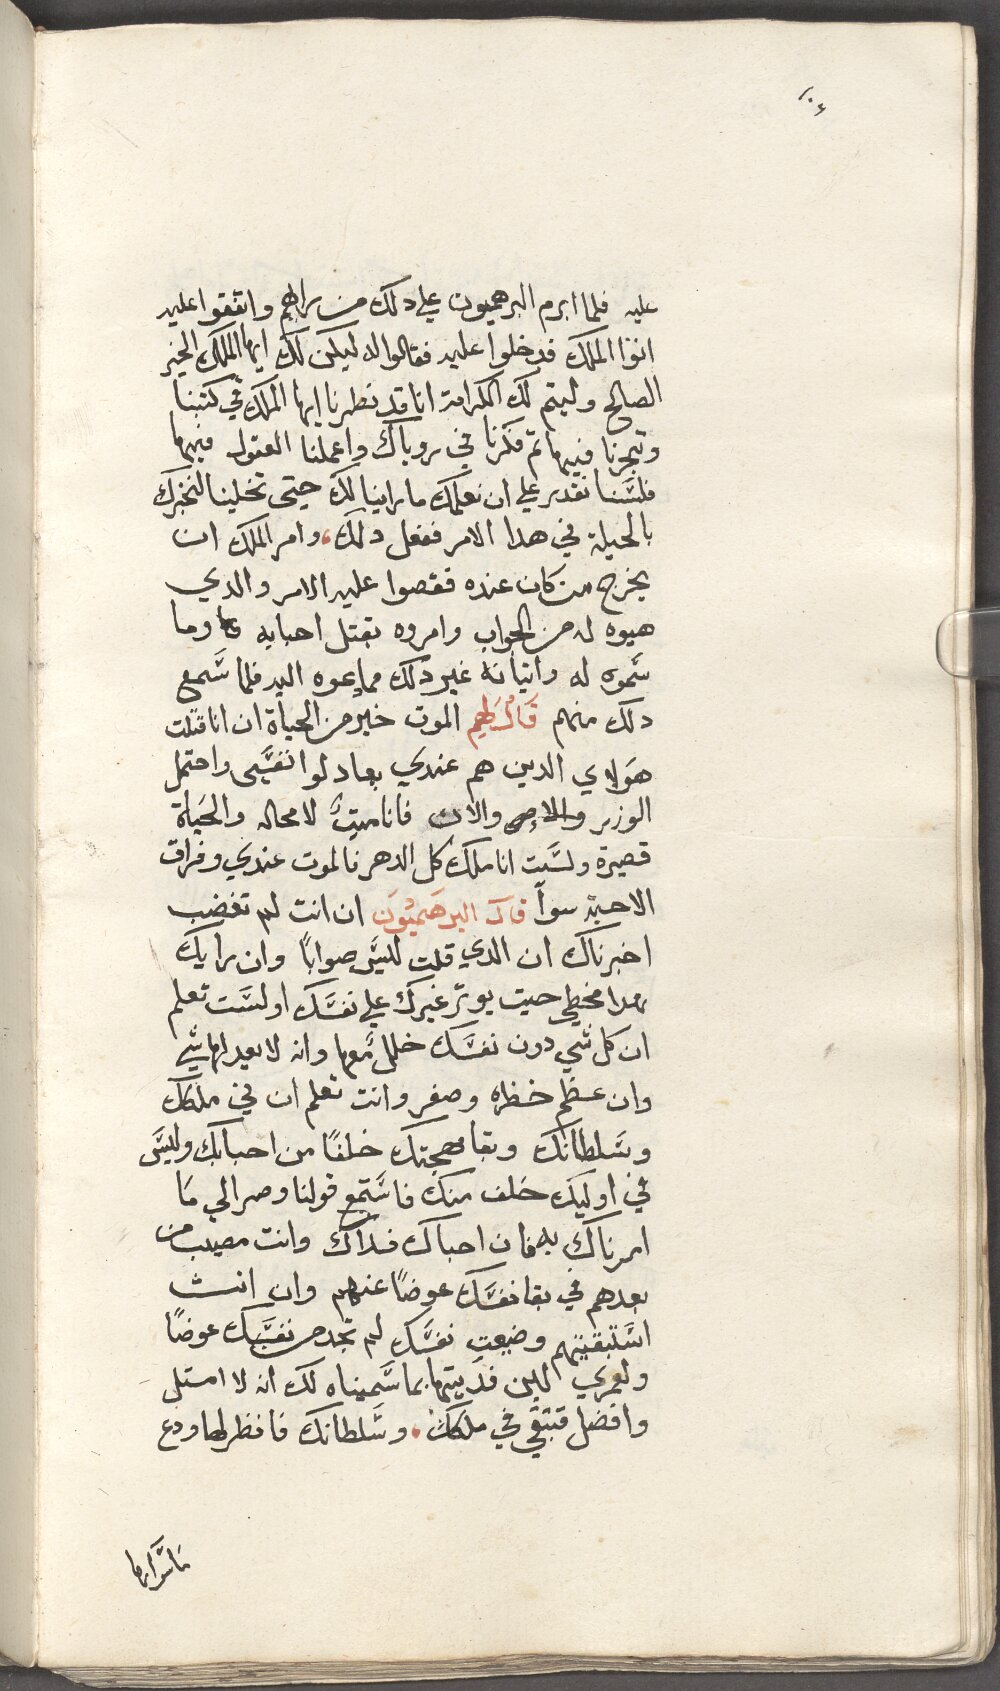 ١٠٤
عليه فلما ابرم البرهميون علي دلك من رايهم واتفقوا عليه
اتوا الملك فدخلوا عليه فقالوا له ليكن لك ايها الملك الخير
الصالح وليتم لك الكرامة انا قد نظرنا ايها الملك في كتبنا
وتبحرنا فيها ثم فكرنا في روياك واعملنا العقول فيها
فلسنا نقدر علي ان نعلمك ما راينا لك حتى تخلينا لنخبرك
بالحيلة في هدا الامر ففعل دلك، وامر الملك ان
يخرج من كان عنده فقصوا عليه الامر والدي
هيوه له من الجواب وامروه بقتل احبايه وما
سموه له واتيانه غير دلك مما دعوه اليه فلما سمع
دلك منهم قال لهم الموت خير من الحياة ان انا قتلت
هولاي الدين هم عندي بعادلوا نفسى واحتمل
الوزر والاصر والان فانا ميت لا محاله والحياة
قصيرة ولست انا ملك كل الدهر فالموت عندي وفراق
الاحبة سوآ قال البرهميون ان انت لم تغضب
اخبرناك ان الدي قلت ليس صوابًا وان رايك
بهدا مخطي حيت يوتر غيرك علي نفسك اولست تعلم
ان كل شي دون نفسك خلل معها وانه لا يعد لها شي
وان عظم خطره وصغر وانت تعلم ان في ملكك
وسلطانك وبقا مهجتك خلفًا من احبابك وليس
في اوليك خلف منك فاستمع قولنا وصر الي ما
امرناك به فان احباك فداك وانت مصيب من
بعدهم في بقا نفسك عوضًا عنهم وان انت
استبقيتهم وضيعت نفسك لم تجد من نفسك عوضًا
ولعمري لين فديتها بما سميناه لك انه لا امتل
وافضل فتبقي في ملكك، وسلطانك فانظر لها ودع
ما سوايها